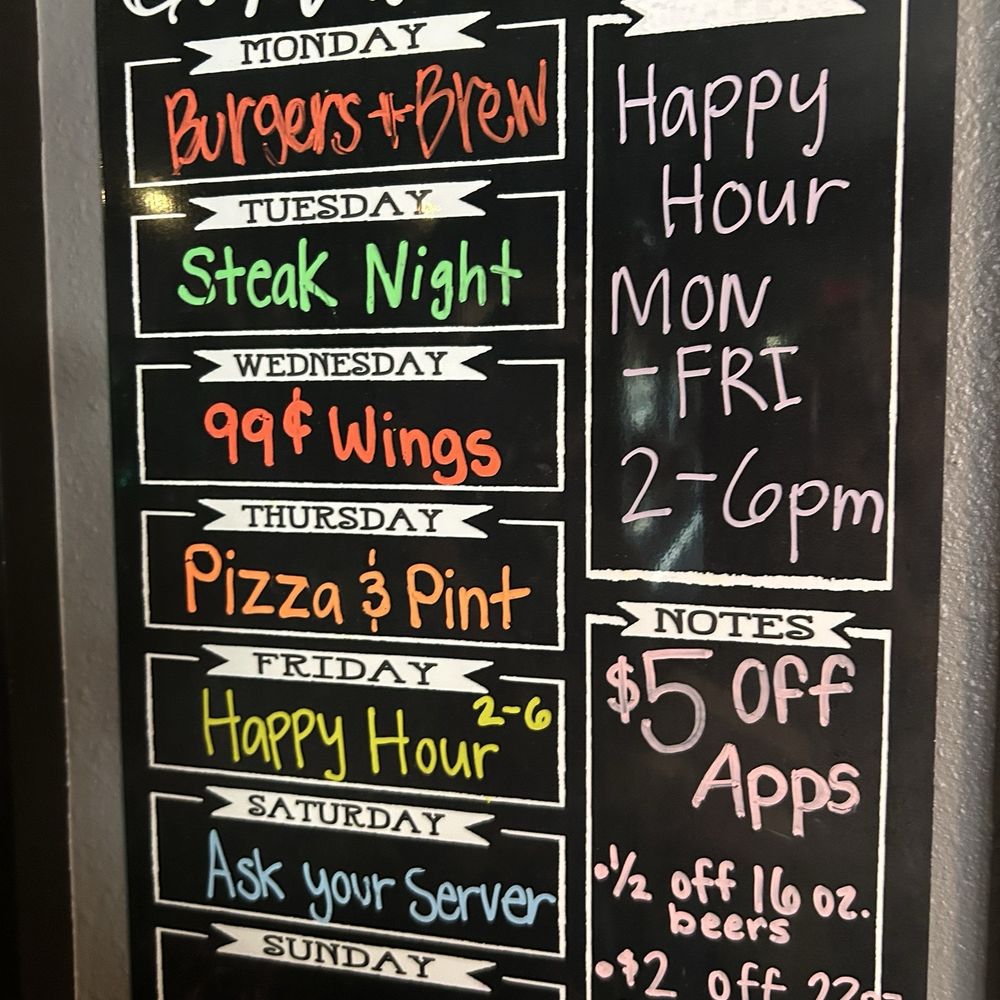 MONDAY
Burgers + Brew
TUESDAY
Steak Night
WEDNESDAY
99¢ Wings
THURSDAY
Pizza & Pint
FRIDAY
Happy Hour 2-6
SATURDAY
Ask your Server
SUNDAY
Happy
Hour
MON
-FRI
2-6pm
NOTES
$5 Off
Apps
•1/2 off 16 oz.
beers
•$2 off